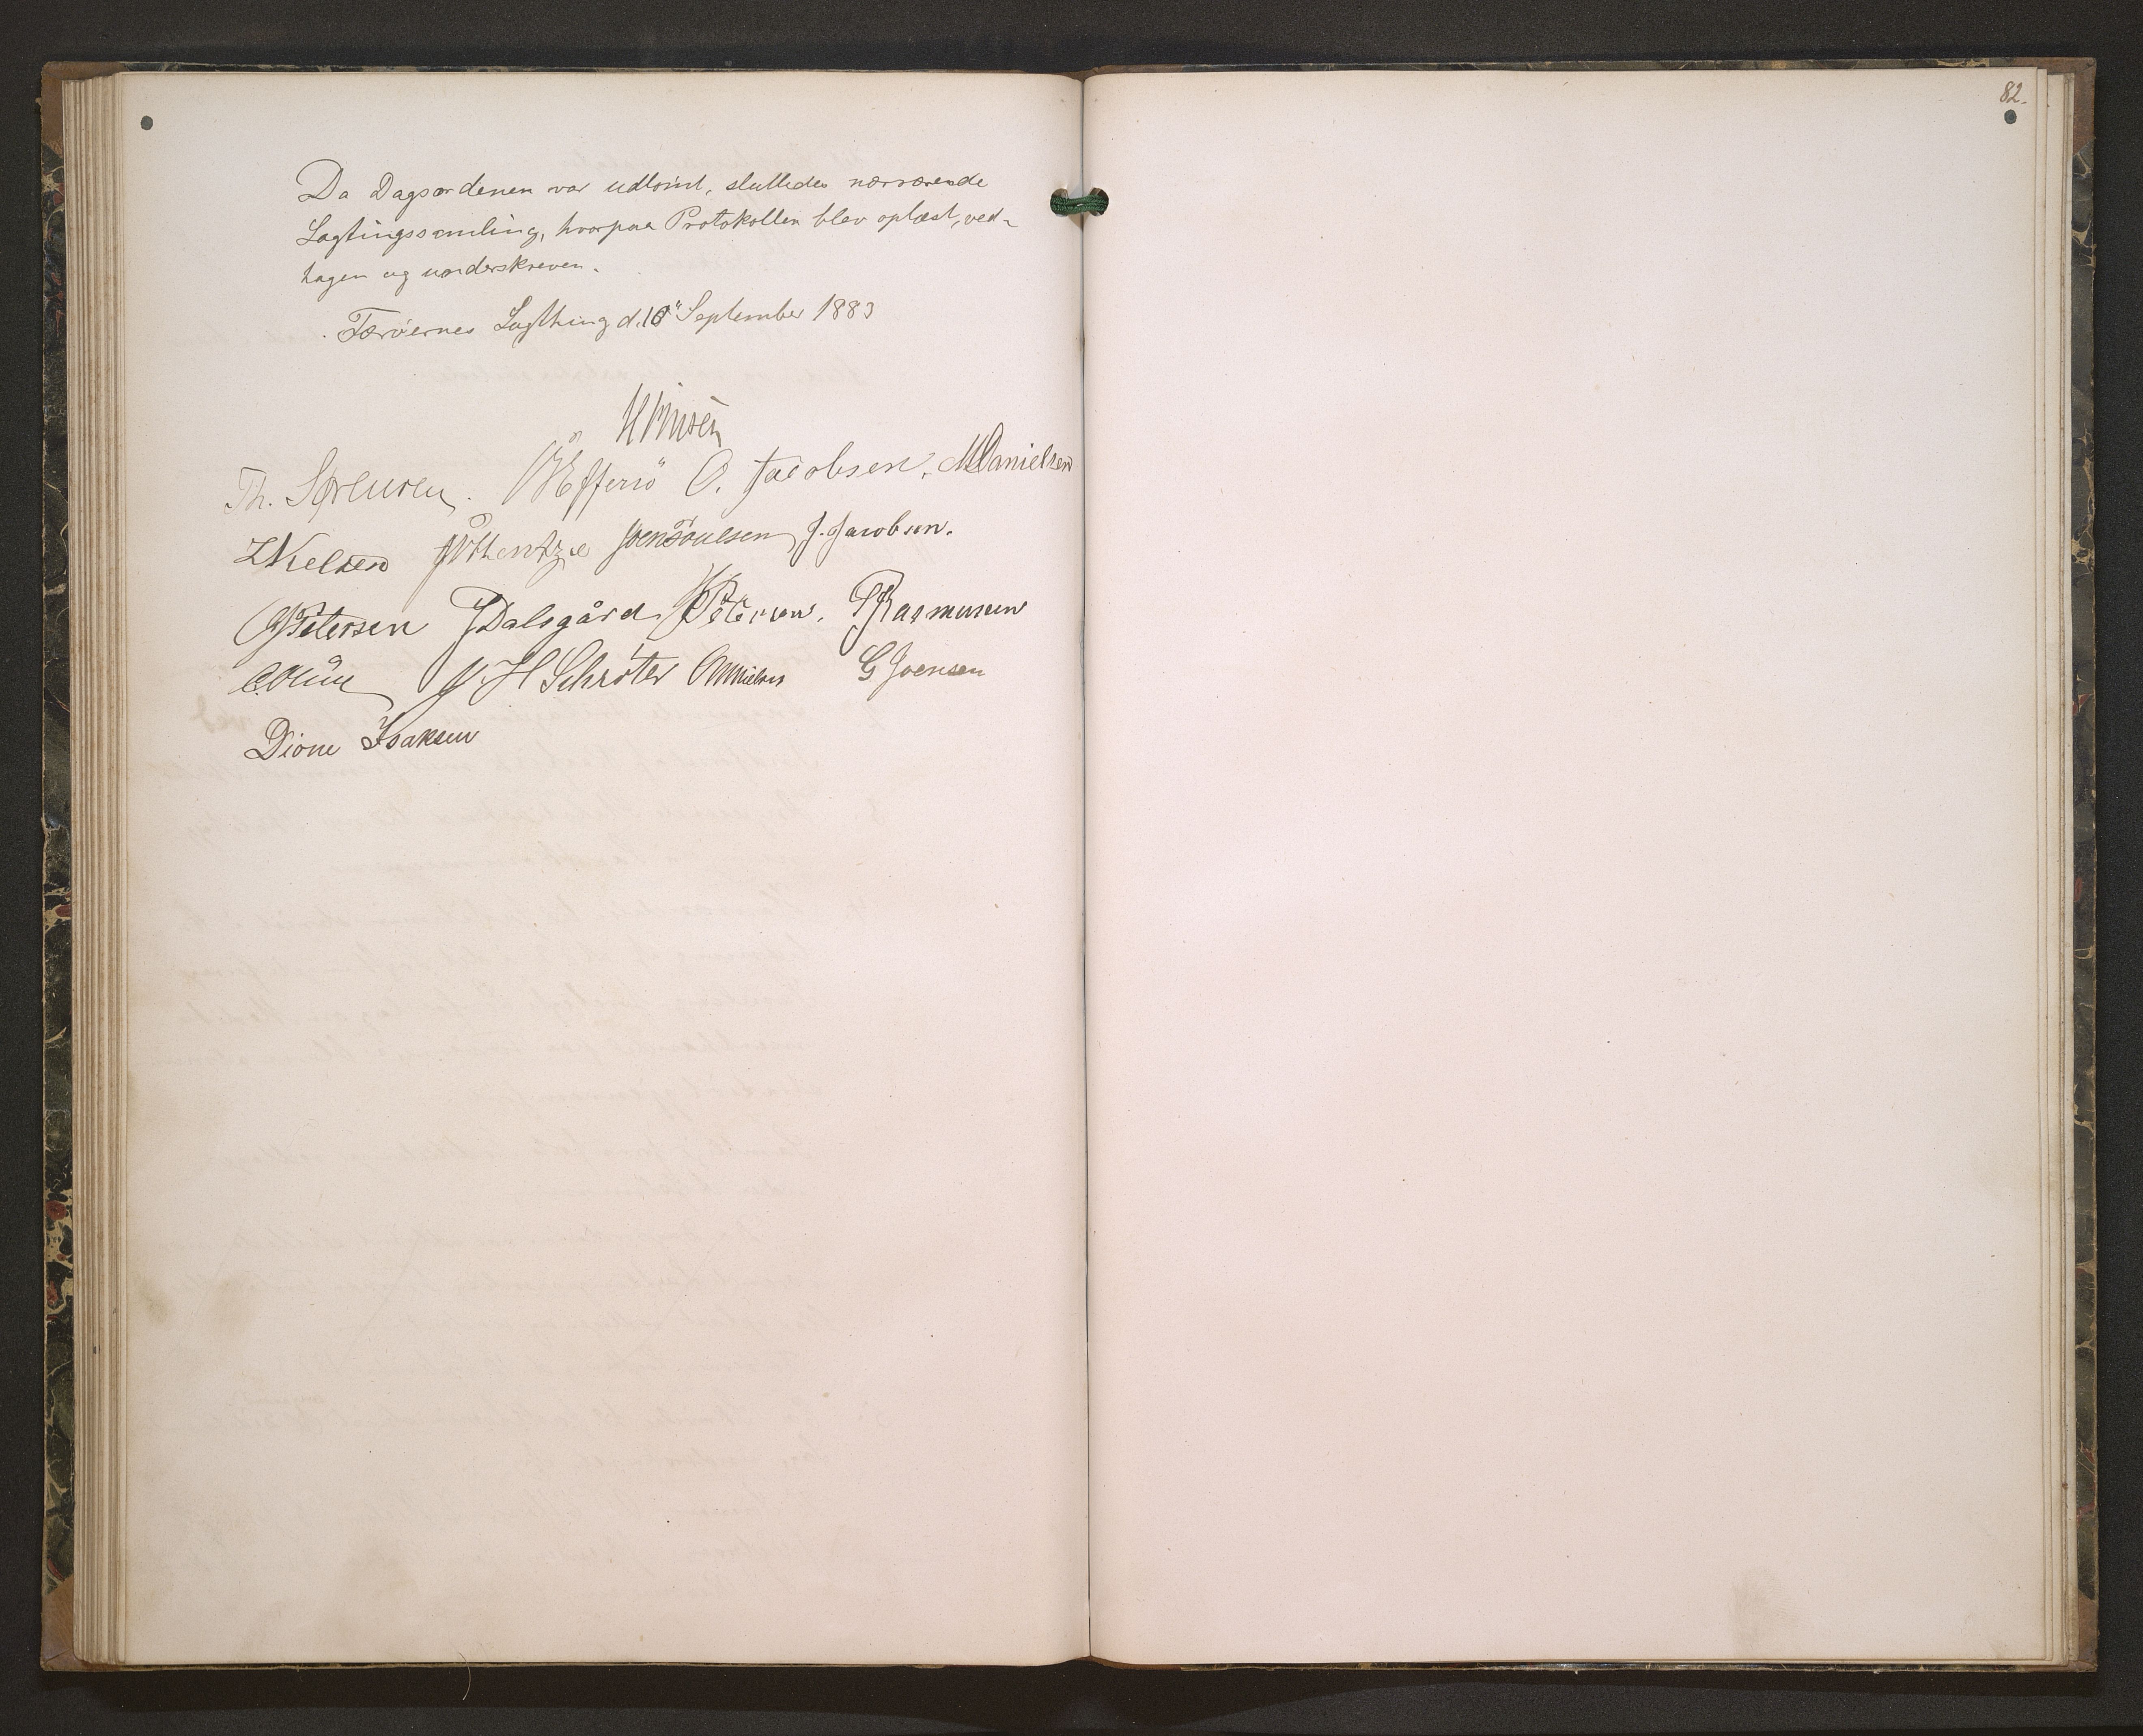 82.
Da Dagsordenen var udtömt, sluttedes nærværende
Lagtingssamling, hvorpaa Protokollen blev oplæst, ved-
tagen og underskreven.
Færöernes Lagthing d. 10" September 1883
Th. Sørensen. Effersö O. Jacobsen. MDanielsen
Poulsen J. Jacobsen.
Petersen JDalsgård Petersen. Rasmussen
H Schröter G Joensen
Dione Isaksen